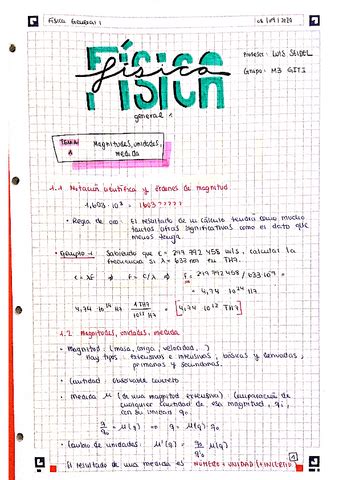 Física General 1
Profesor: LUIS SEIDEL
Grupo: M3 GITI
física
FÍSICA
general 1
TEMA 1
Magnitudes, unidades, medida
1.1 Notación científica y órdenes de magnitud
1,603 · 10⁸ = 1603?????
• Regla de oro: El resultado de un cálculo tendrá como mucho
tantas cifras significativas como el dato que
menos tenga.
Ejemplo 1 Sabiendo que c = 299 792 458 m/s, calcular la
frecuencia si λ = 633 nm en THz.
c = λf ⇒ f = c/λ ⇒ f =
= 4,74 · 10¹⁴ Hz
4,74 · 10¹⁴ Hz 1 THz / 10¹² Hz =
1.2 Magnitudes, unidades, medida
• Magnitud: (masa, carga, velocidad...)
Hay tipos: extensivas e intensivas; básicas y derivadas,
primarias y secundarias.
• Cantidad: observable concreto
• Medida μ (de una magnitud extensiva): Comparación de
cualquier cantidad de esa magnitud, q,
con su unidad q₀.
q/q₀ = μ(q) ⇒ q = μ(q)
• Cambio de unidades: μ'(q) = μ(q)
El resultado de una medida es NÚMERO + UNIDAD
1